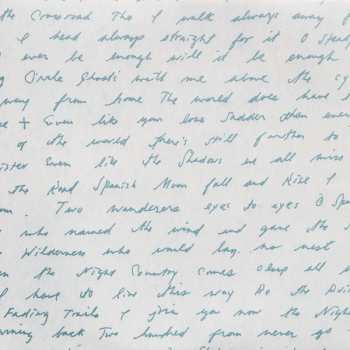 the Crossroad The I walk always away f
I head always straight for it O Stea
I ever be enough will it be enough
Circle Ghosts with me above the
away from home The world does have
+ Even like your love Sadder than ever
of the world there's still further to
sister Even like the Shadows we all miss
the Road Spanish Moon fall and Rise I
Two wanderers eyes to eyes O Sp
who named the wind and gave the
Wilderness who would lay nor nest
the Night Country comes along all
I have to live this way Do the
Fading Trails I give you now the Nigh
back Two hundred from never go